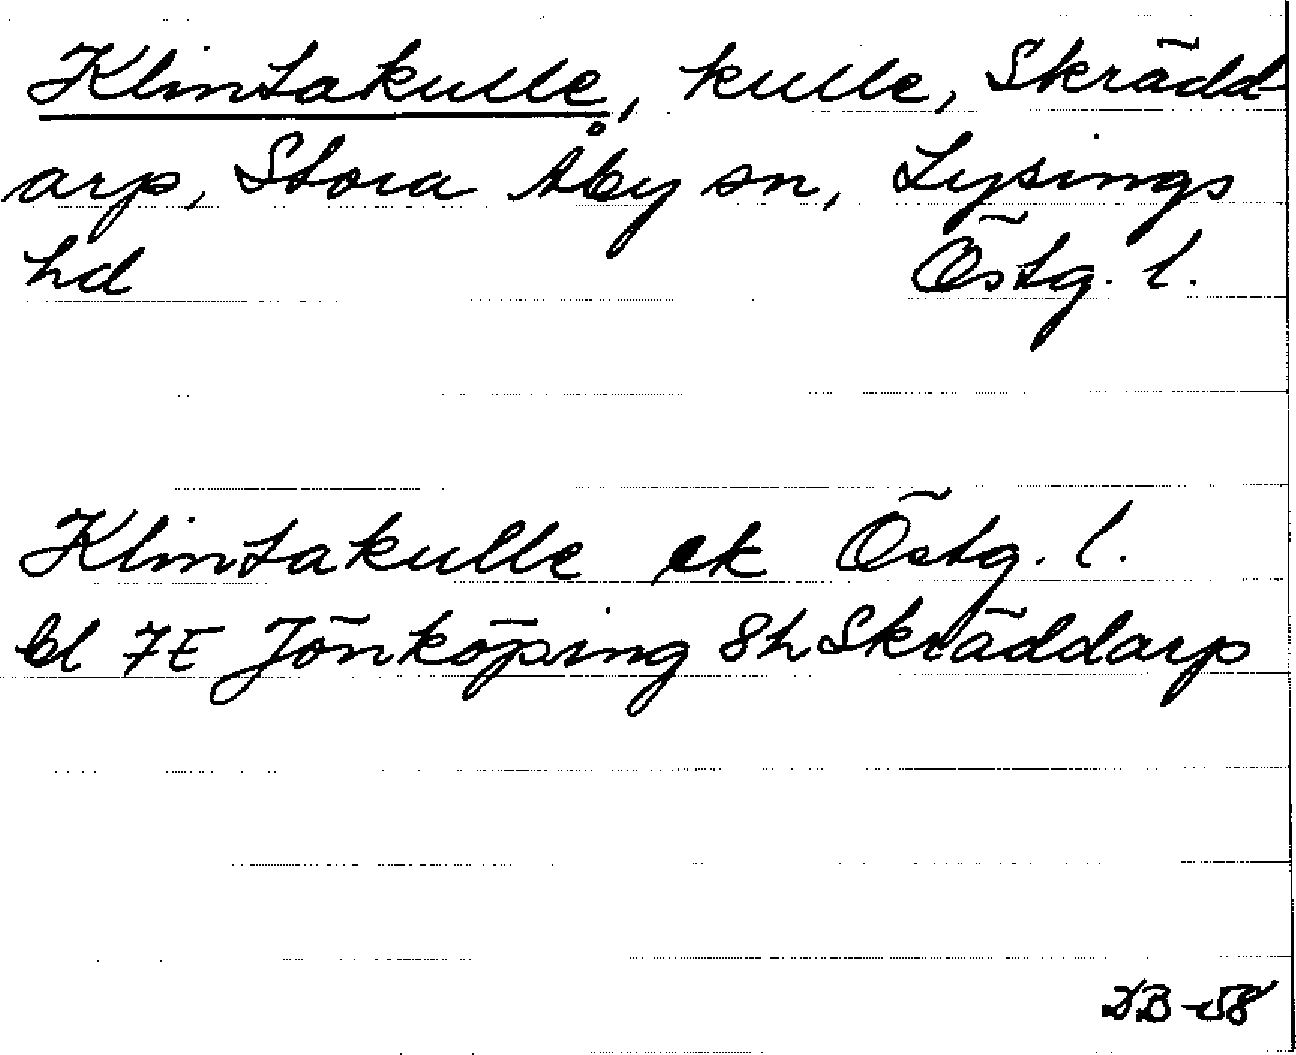 Klintakulle, kulle, Skrädd-
arp, Stora Åby sn, Lysings
hd Östg. l.
Klintakulle ek Östg. l.
bl 7E Jönköping 8h Skräddarp
DB -58